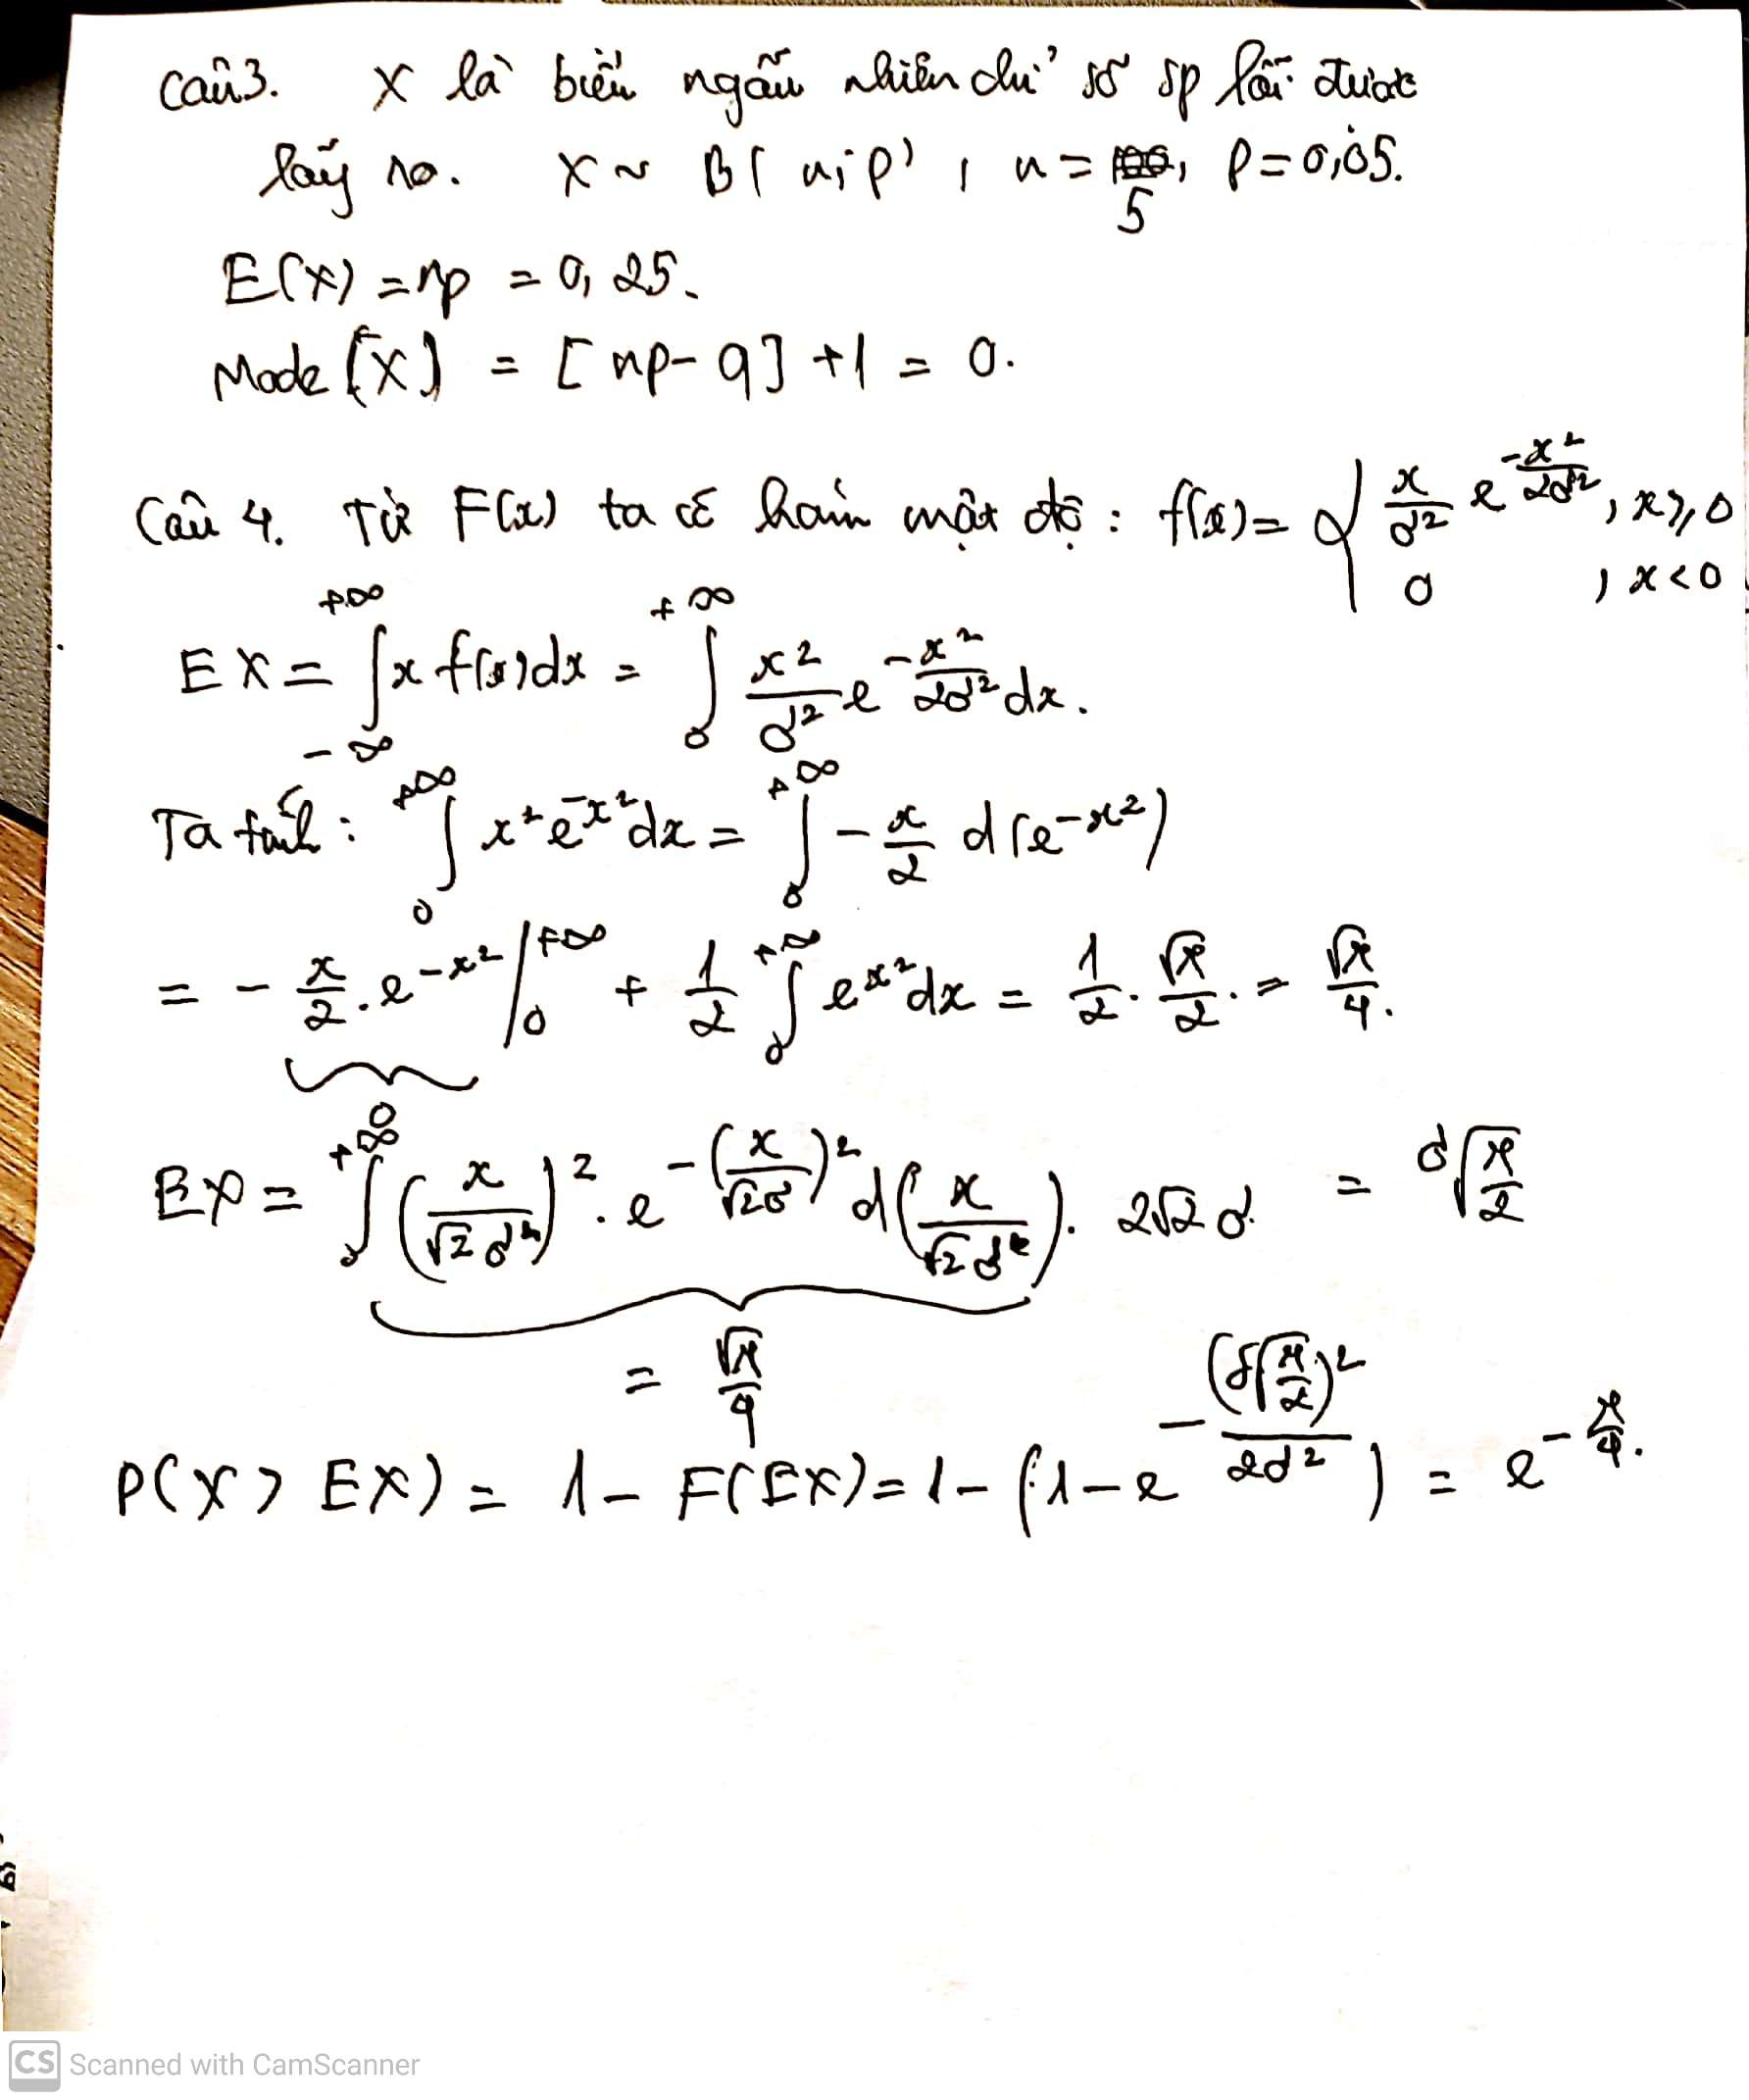 Câu 3. X là biến ngẫu nhiên chỉ số sp lỗi được
lấy ra. X ~ B(n;p), n = 5, p = 0,05.
E(X) = np = 0,25.
Mode [X] = [np - q] + 1 = 0.
Câu 4. Từ F(x) ta có hàm mật độ : f(x) = { x/σ² e^(-x²/2σ²) , x ≥ 0
0 , x < 0
EX = ∫_{-∞}^{+∞} x f(x) dx = ∫_0^{+∞} x²/σ² e^(-x²/2σ²) dx.
Ta tính : ∫_0^{+∞} x² e^(-x²) dx = ∫_0^{+∞} -x/2 d(e^(-x²))
= -x/2 . e^(-x²) |_0^{+∞} + 1/2 ∫_0^{+∞} e^(x²) dx = 1/2 . √π/2 . = √π/4.
0
EX = ∫_0^{+∞} (x/√2σ)² . e^(-(x/√2σ)²) d(x/√2σ) . 2√2 σ = σ√(π/2)
= √π/4
P(X > EX) = 1 - F(EX) = 1 - (1 - e^(-(σ√(π/2))²/2σ²)) = e^(-π/4).
CS Scanned with CamScanner